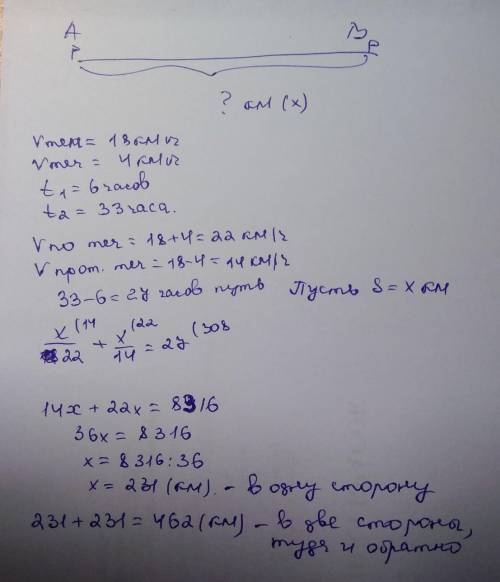 А В
Р Р
? км (х)
Vтеп = 18км\ч
Vтеч = 4км\ч
t1 = 6 часов
t2 = 33 часа.
V по теч = 18+4 = 22 км/ч
V прот. теч = 18-4 = 14 км/ч
33-6 = 27 часов путь Пусть S = х км
х(14/22 + х(22/14 = 27(308
14х + 22х = 8316
36х = 8316
х = 8316:36
х = 231 (км) - в одну сторону
231+231 = 462 (км) - в две стороны,
туда и обратно